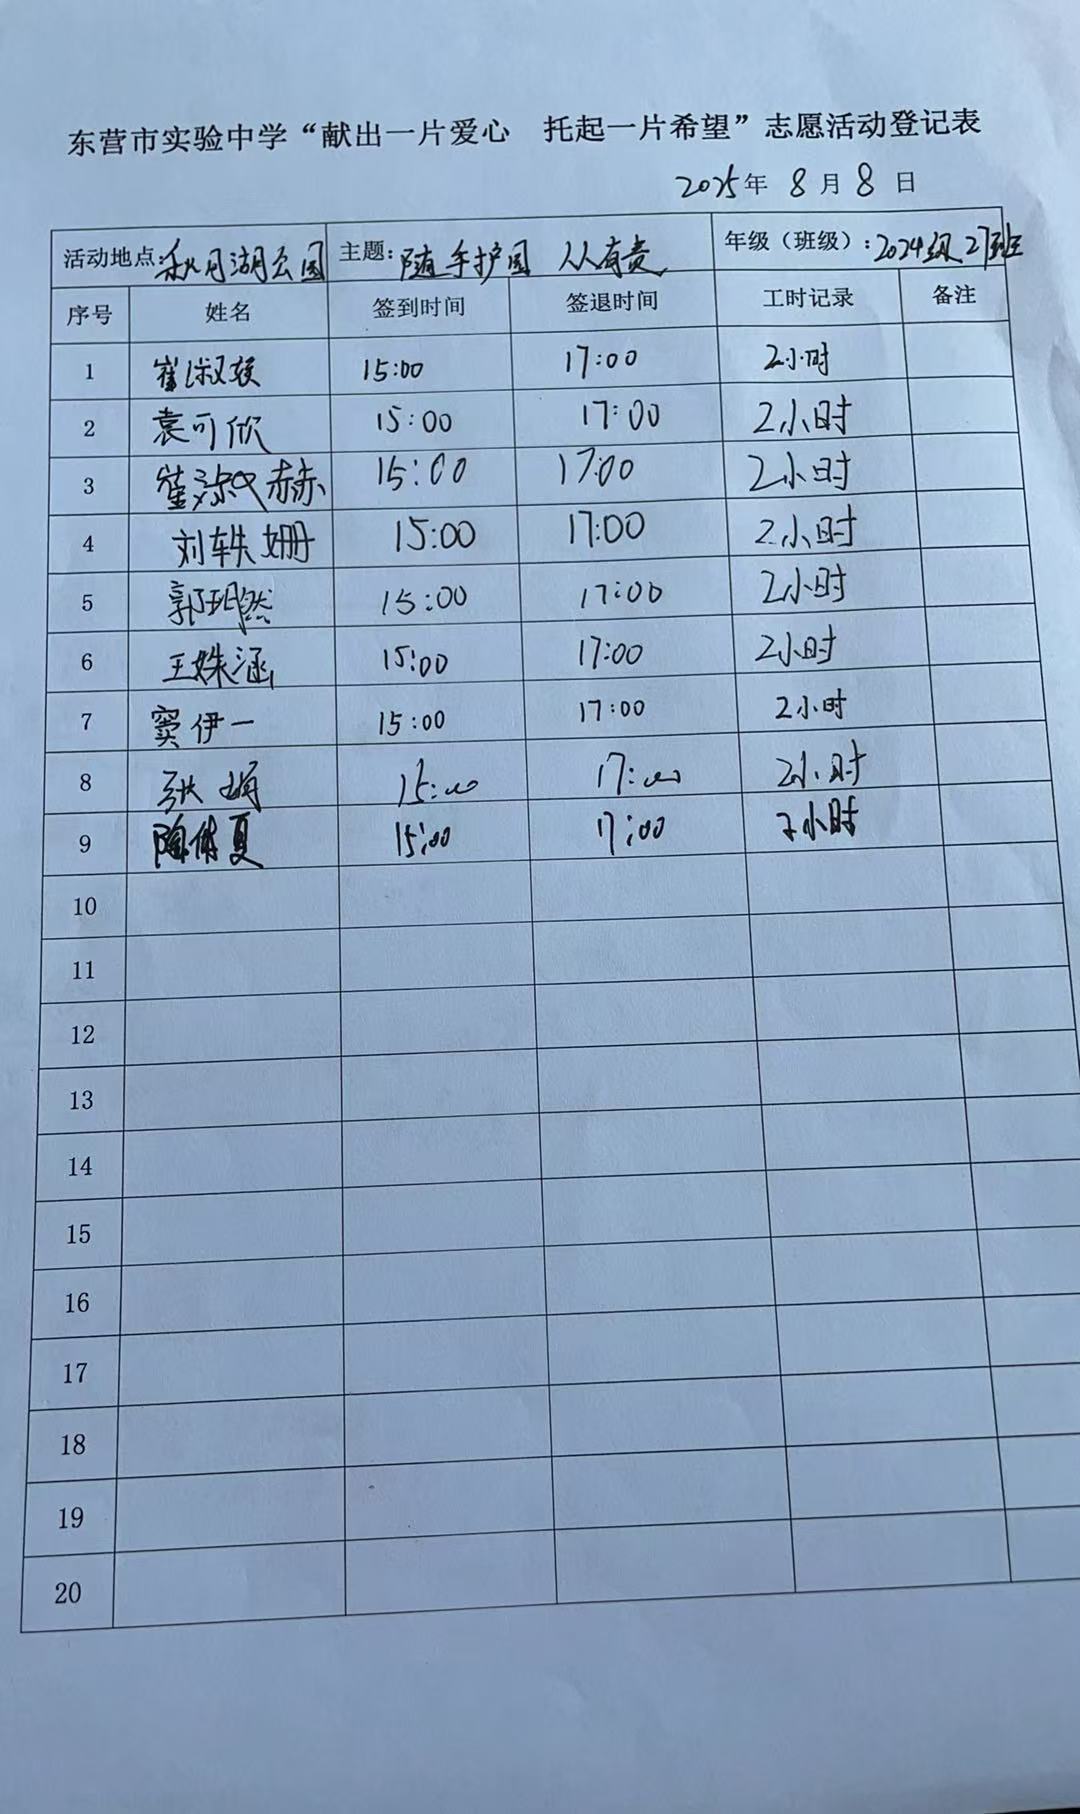 东营市实验中学“献出一片爱心 托起一片希望”志愿活动登记表
2025年 8月8日
活动地点:秋月湖公园 主题:随手护园 人人有责 年级（班级）:2024级27班
序号 姓名 签到时间 签退时间 工时记录 备注
1 崔淑 15:00 17:00 2小时
2 袁可欣 15:00 17:00 2小时
3 崔淑赫 15:00 17:00 2小时
4 刘轶姗 15:00 17:00 2小时
5 郭玥然 15:00 17:00 2小时
6 王姝涵 15:00 17:00 2小时
7 窦伊一 15:00 17:00 2小时
8 张 15:00 17:00 2小时
9 夏 15:00 17:00 2小时
10
11
12
13
14
15
16
17
18
19
20